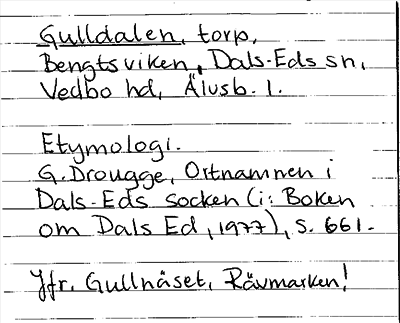 Gulldalen, torp,
Bengtsviken, Dals-Eds sn,
Vedbo hd, Älvsb. l.
Etymologi.
G. Drougge, Ortnamnen i
Dals-Eds socken (i: Boken
om Dals Ed, 1977), s. 661.
Jfr. Gullnäset, Rävmarken!